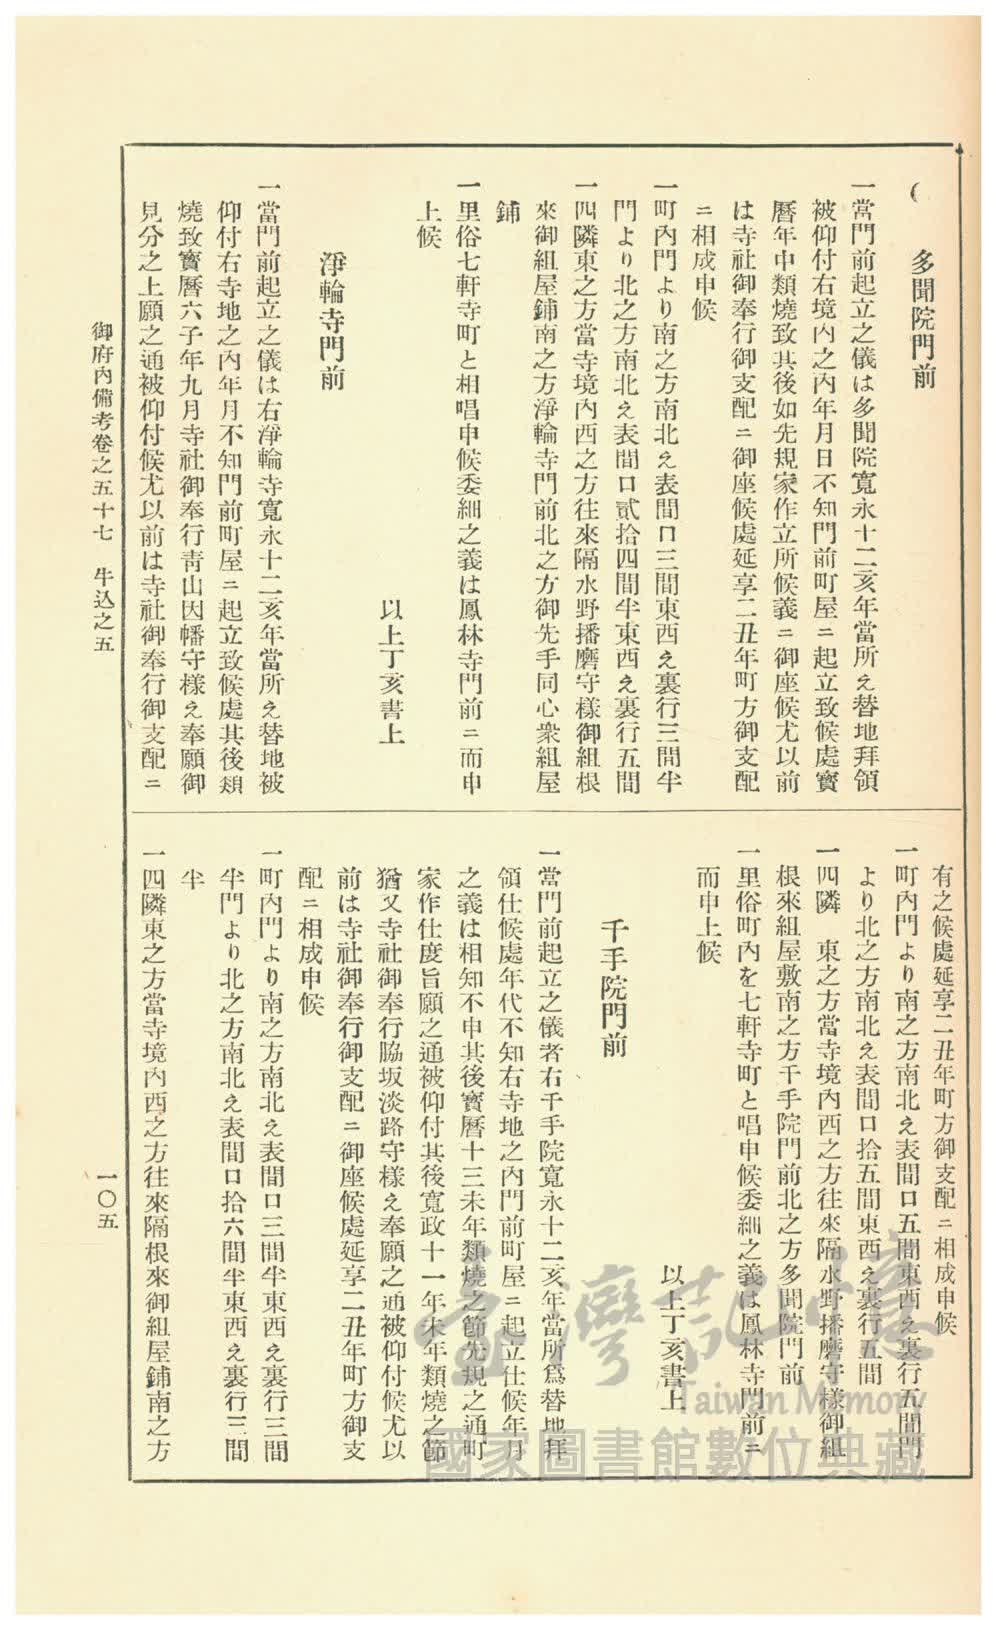 多聞院門前
一當門前起立之儀は多聞院寬永十二亥年當所え替地拜領
被仰付右境內之內年月日不知門前町屋ニ起立致候處寶
曆年中類燒致其後如先規家作立所候義ニ御座候尤以前
は寺社御奉行御支配ニ御座候處延享二丑年町方御支配
ニ相成申候
一町內門より南之方南北え表間口三間東西え裏行三間半
門より北之方南北え表間口貳拾四間半東西え裏行五間
一四隣東之方當寺境內西之方往來隔水野播磨守樣御組根
來御組屋鋪南之方淨輪寺門前北之方御先手同心衆組屋
鋪
一里俗七軒寺町と相唱申候委細之義は鳳林寺門前ニ而申
上候
以上丁亥書上
淨輪寺門前
一當門前起立之儀は右淨輪寺寬永十二亥年當所え替地被
仰付右寺地之內年月不知門前町屋ニ起立致候處其後類
燒致寶曆六子年九月寺社御奉行靑山因幡守樣え奉願御
見分之上願之通被仰付候尤以前は寺社御奉行御支配ニ
有之候處延享二丑年町方御支配ニ相成申候
一町內門より南之方南北え表間口五間東西え裏行五間門
より北之方南北え表間口拾五間東西え裏行五間
一四隣　東之方當寺境內西之方往來隔水野播磨守樣御組
根來組屋敷南之方千手院門前北之方多聞院門前
一里俗町內を七軒寺町と唱申候委細之義は鳳林寺門前ニ
而申上候
以上丁亥書上
千手院門前
一當門前起立之儀者右千手院寬永十二亥年當所爲替地拜
領仕候處年代不知右寺地之內門前町屋ニ起立仕候年月
之義は相知不申其後寶曆十三未年類燒之節先規之通町
家作仕度旨願之通被仰付其後寬政十一年未年類燒之節
猶又寺社御奉行脇坂淡路守樣え奉願之通被仰付候尤以
前は寺社御奉行御支配ニ御座候處延享二丑年町方御支
配ニ相成申候
一町內門より南之方南北え表間口三間半東西え裏行三間
半門より北之方南北え表間口拾六間半東西え裏行三間
半
一四隣東之方當寺境內西之方往來隔根來御組屋鋪南之方
御府內備考卷之五十七　牛込之五
一〇五
臺灣記憶
Taiwan Memory
國家圖書館數位典藏